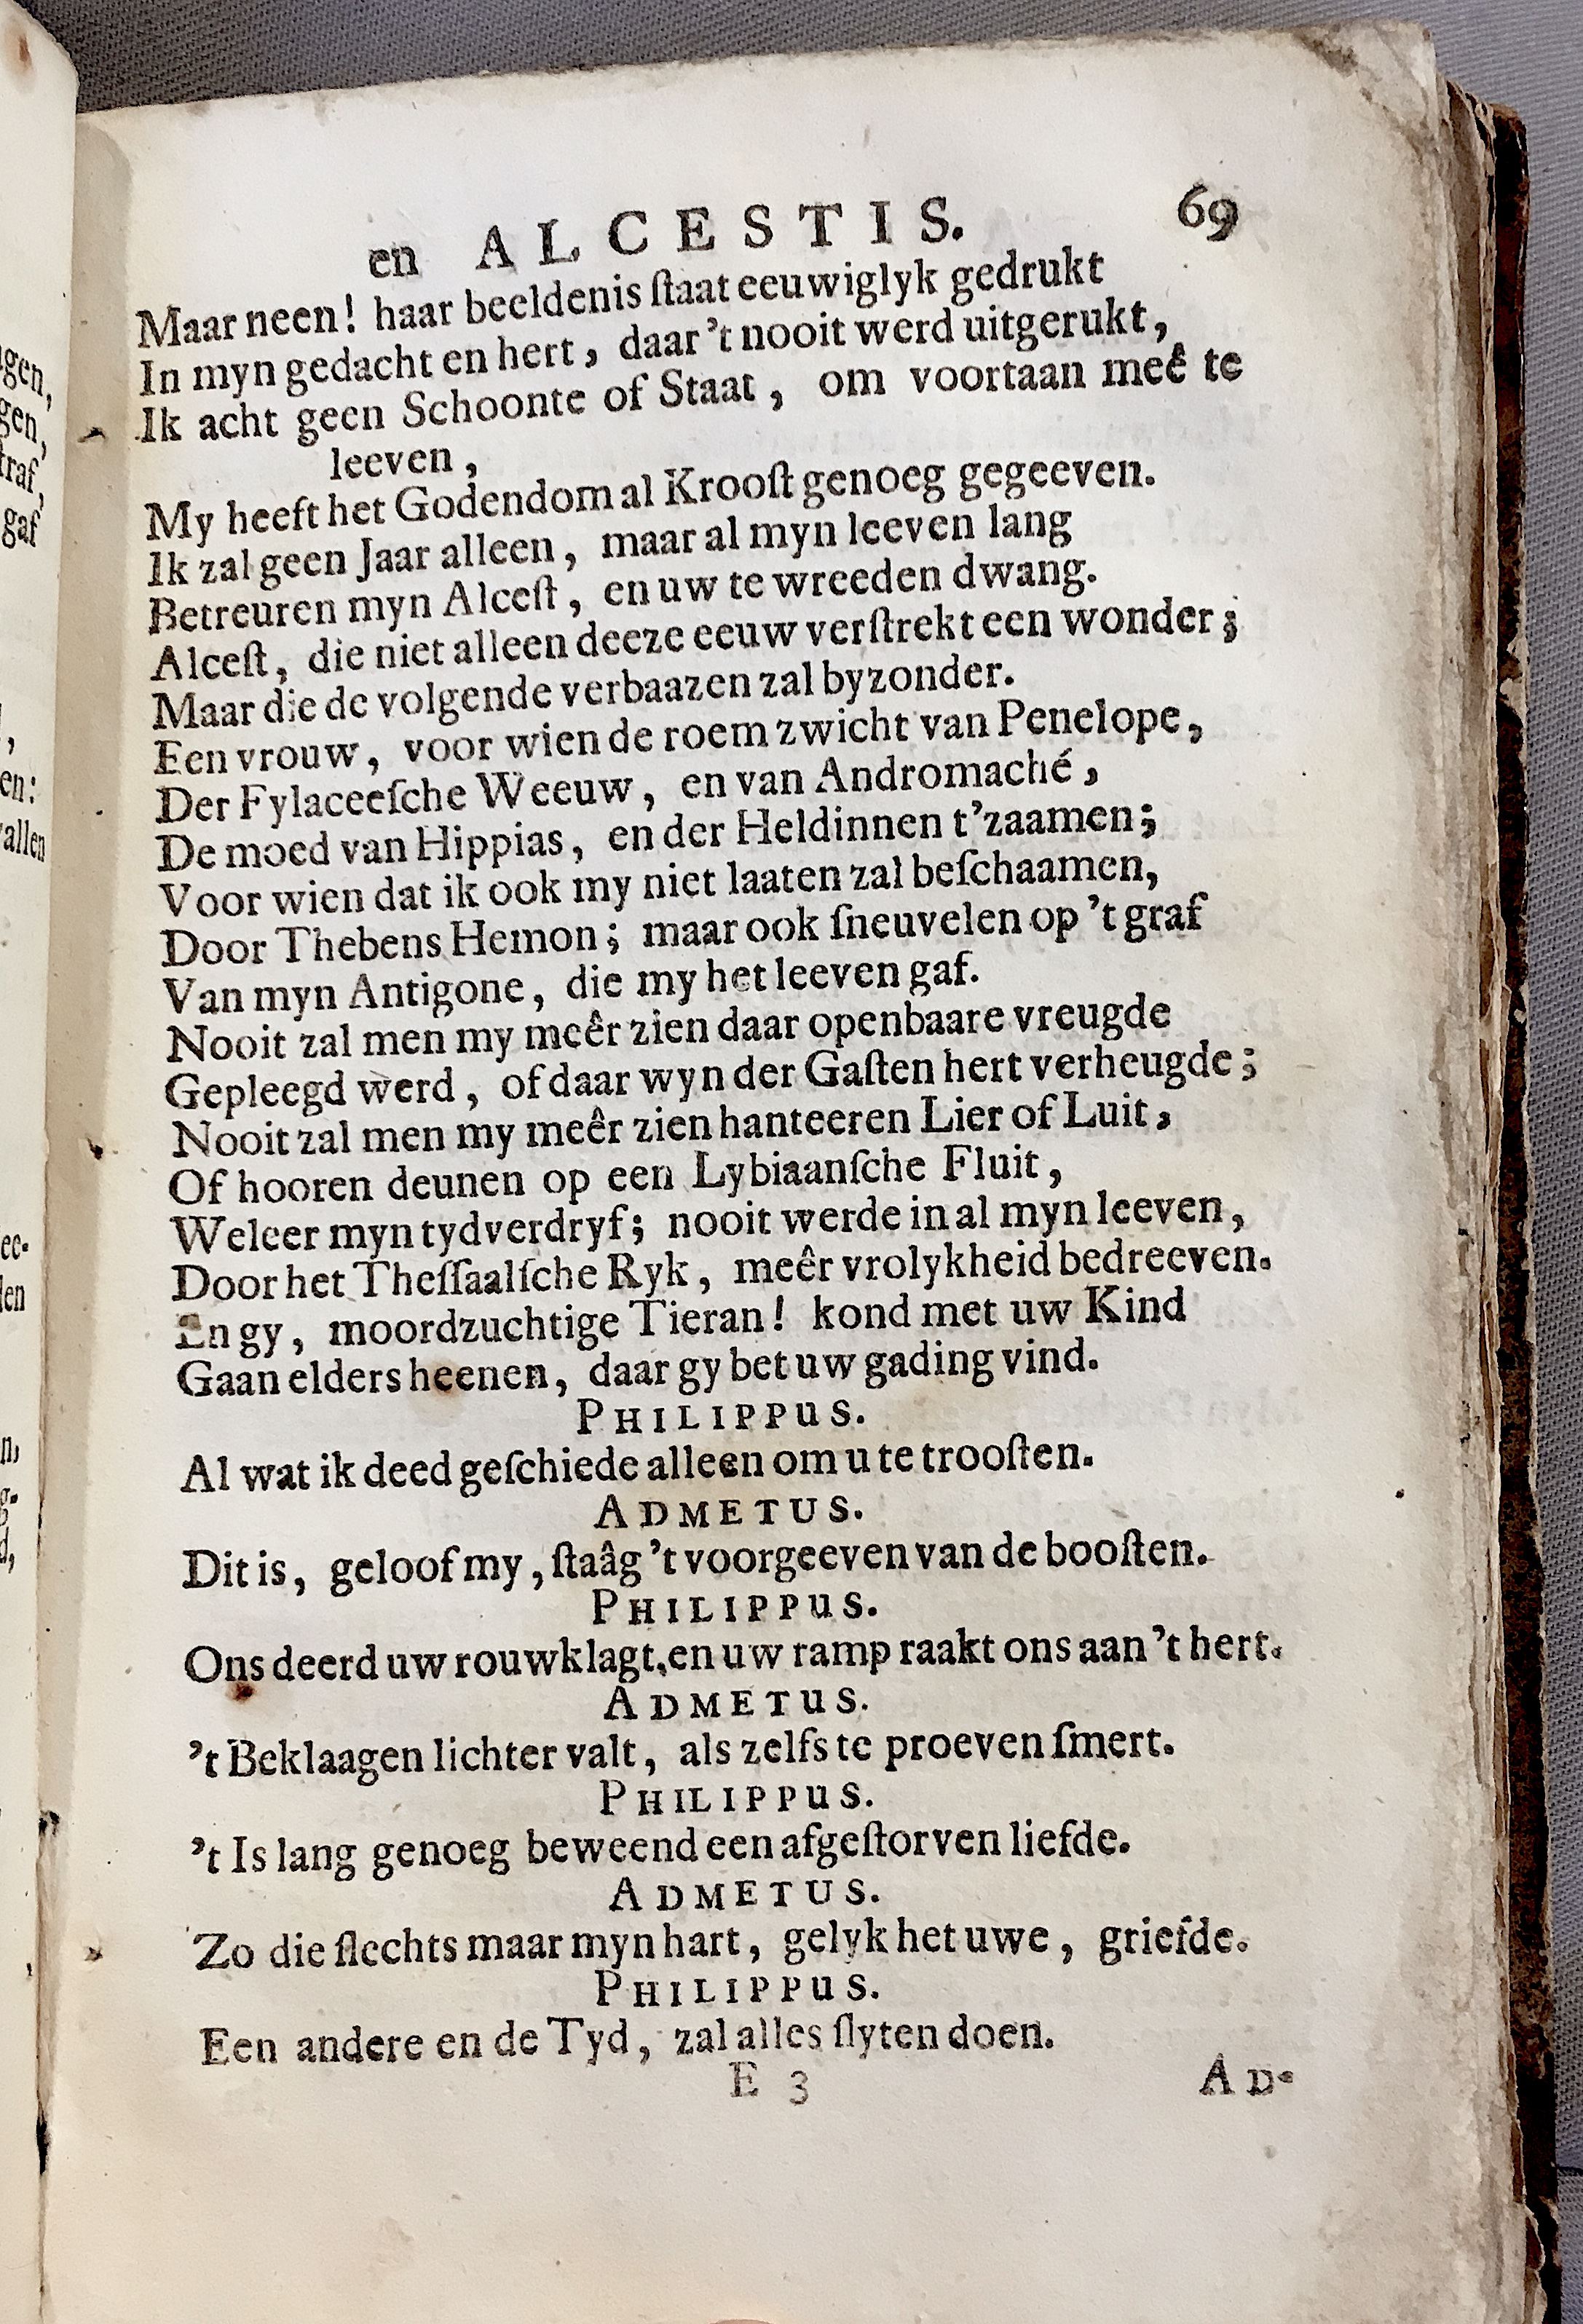 en ALCESTIS. 69
Maar neen! haar beeldenis ſtaat eeuwiglyk gedrukt
In myn gedacht en hert, daar 't nooit werd uitgerukt,
Ik acht geen Schoonte of Staat, om voortaan meê te
leeven,
My heeft het Godendom al Krooſt genoeg gegeeven.
Ik zal geen Jaar alleen, maar al myn leeven lang
Betreuren myn Alceſt, en uw te wreeden dwang.
Alceſt, die niet alleen deeze eeuw verſtrekt een wonder;
Maar die de volgende verbaazen zal byzonder.
Een vrouw, voor wien de roem zwicht van Penelope,
Der Fylaceeſche Weeuw, en van Andromaché,
De moed van Hippias, en der Heldinnen t'zaamen;
Voor wien dat ik ook my niet laaten zal beſchaamen,
Door Thebens Hemon; maar ook ſneuvelen op 't graf
Van myn Antigone, die my het leeven gaf.
Nooit zal men my meêr zien daar openbaare vreugde
Gepleegd werd, of daar wyn der Gaſten hert verheugde;
Nooit zal men my meêr zien hanteeren Lier of Luit,
Of hooren deunen op een Lybiaanſche Fluit,
Weleer myn tydverdryf; nooit werde in al myn leeven,
Door het Theſſaalſche Ryk, meêr vrolykheid bedreeven.
En gy, moordzuchtige Tieran! kond met uw Kind
Gaan elders heenen, daar gy bet uw gading vind.
PHILIPPUS.
Al wat ik deed geſchiede alleen om u te trooſten.
ADMETUS.
Dit is, geloof my, ſtaâg 't voorgeeven van de booſten.
PHILIPPUS.
Ons deerd uw rouwklagt, en uw ramp raakt ons aan 't hert.
ADMETUS.
't Beklaagen lichter valt, als zelfs te proeven ſmert.
PHILIPPUS.
't Is lang genoeg beweend een afgeſtorven liefde.
ADMETUS.
Zo die ſlechts maar myn hart, gelyk het uwe, griefde.
PHILIPPUS.
Een andere en de Tyd, zal alles ſlyten doen.
E 3 AD-